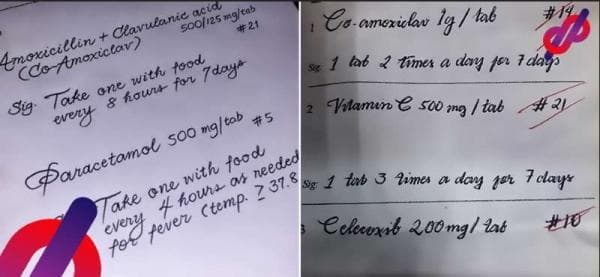 Amoxicillin + Clavulanic acid
(Co-Amoxiclav) 500/125 mg/tab
#21
Sig. Take one with food
every 8 hours for 7 days
Paracetamol 500 mg/tab #5
Take one with food
every 4 hours as needed
for fever (temp. ≥ 37.8
1 Co-amoxiclav 1g / tab #14
Sig: 1 tab 2 times a day for 7 days
2 Vitamin C 500 mg / tab #21
Sig: 1 tab 3 times a day for 7 days
3 Celecoxib 200 mg / tab #10